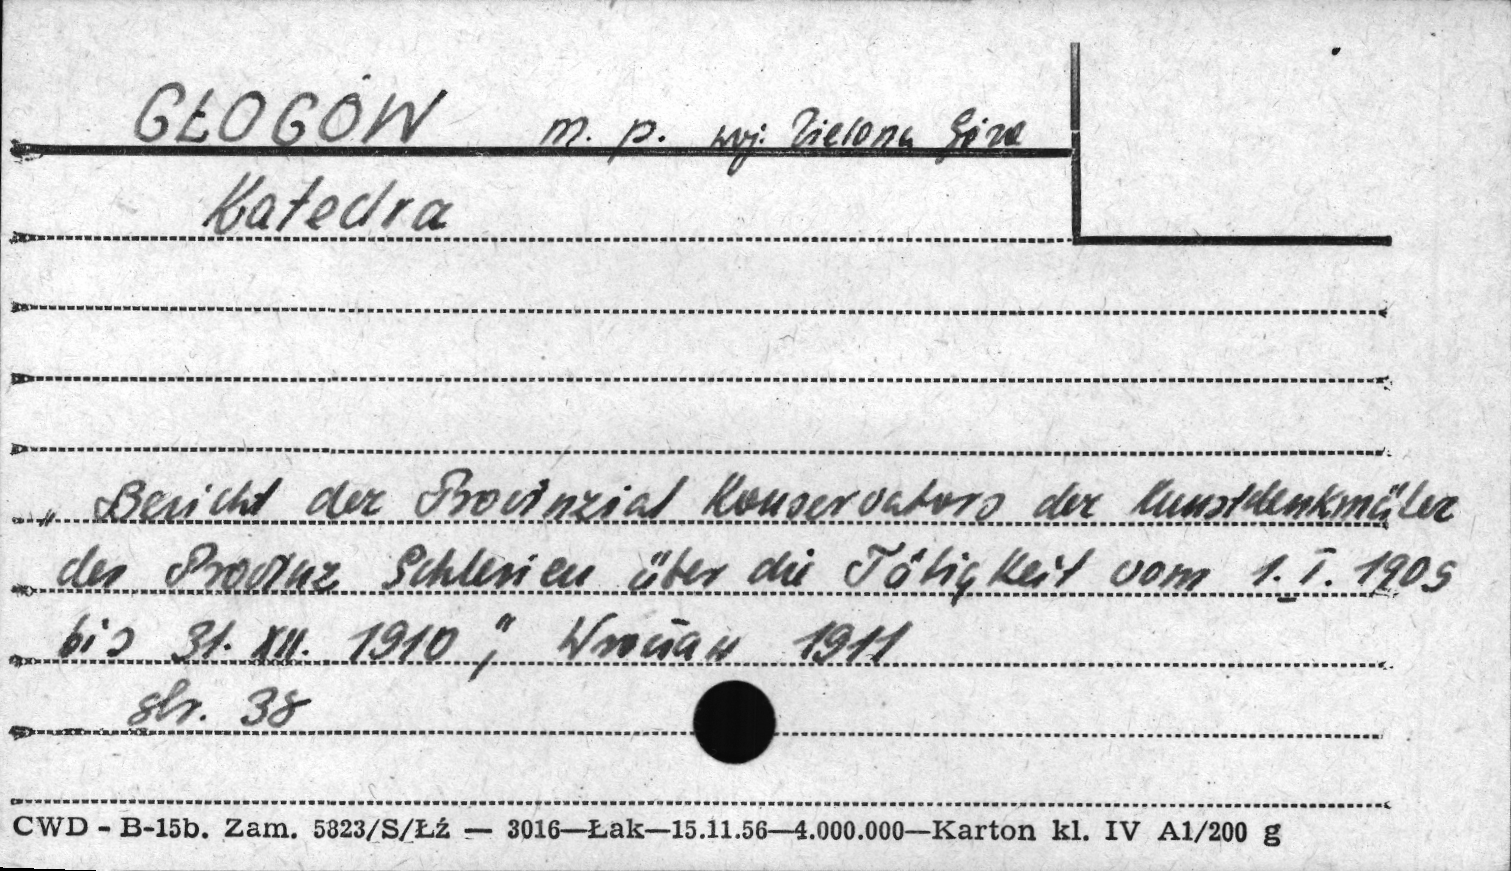 GŁOGÓW m. p. woj. Zielona Góra
Katedra
„Bericht der Provinzial Konservators der Kunstdenkmäler
der Provinz Schlesien über die Tätigkeit vom 1. I. 1909
bis 31. XII. 1910", Wrocław 1911
str. 38
CWD - B-15b. Zam. 5823/S/Łź — 3016—Łak—15.11.56—4.000.000—Karton kl. IV A1/200 g